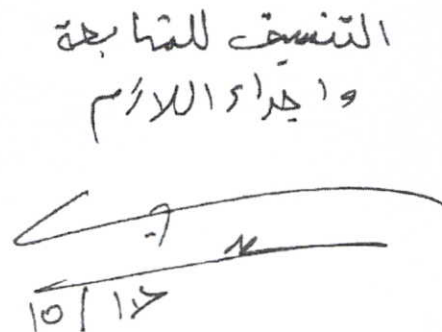 التنسيق للمتابعة
واجراء اللازم